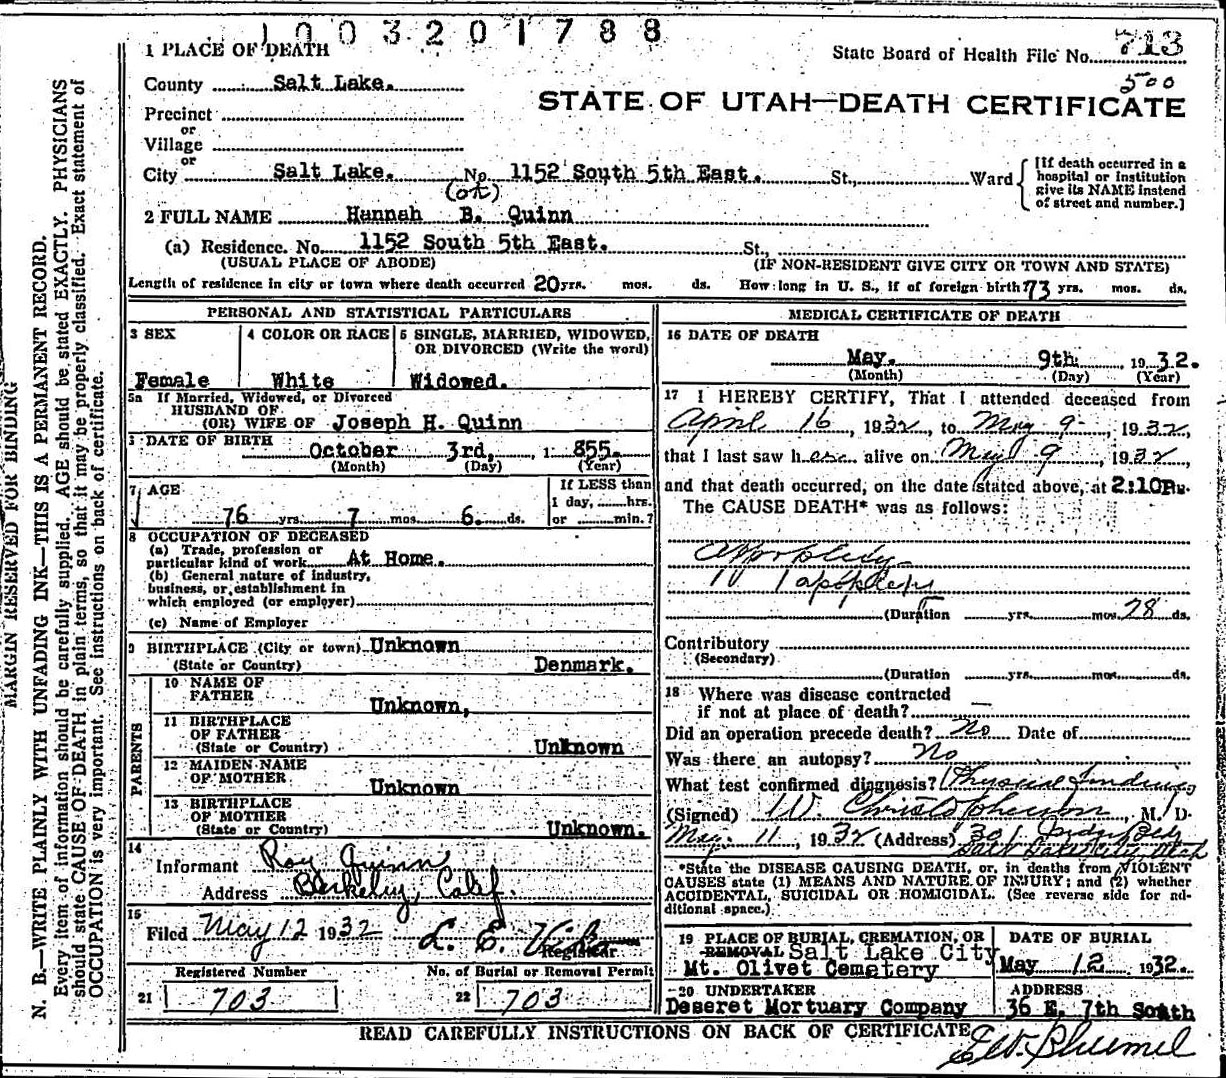 1003201788
1 PLACE OF DEATH
State Board of Health File No. 713
500
STATE OF UTAH—DEATH CERTIFICATE
County Salt Lake.
Precinct
or
Village
or
City Salt Lake. No. 1152 South 5th East. St., Ward
[If death occurred in a
hospital or institution
give its NAME instead
of street and number.]
2 FULL NAME Hannah B. Quinn
(a) Residence. No. 1152 South 5th East. St.,
(USUAL PLACE OF ABODE) (IF NON-RESIDENT GIVE CITY OR TOWN AND STATE)
Length of residence in city or town where death occurred 20 yrs. mos. ds. How long in U. S., if of foreign birth? 73 yrs. mos. ds.
PERSONAL AND STATISTICAL PARTICULARS
3 SEX
Female
4 COLOR OR RACE
White
5 SINGLE, MARRIED, WIDOWED,
OR DIVORCED (Write the word)
Widowed.
5a If Married, Widowed, or Divorced
HUSBAND OF
(OR) WIFE OF Joseph H. Quinn
DATE OF BIRTH
October 3rd, 1 855.
(Month) (Day) (Year)
7 AGE
76 yrs. 7 mos. 6. ds.
If LESS than
1 day, hrs.
or min.?
8 OCCUPATION OF DECEASED
(a) Trade, profession or
particular kind of work At Home.
(b) General nature of industry,
business, or establishment in
which employed (or employer)
(c) Name of Employer
9 BIRTHPLACE (City or town) Unknown
(State or Country) Denmark.
PARENTS
10 NAME OF
FATHER
Unknown,
11 BIRTHPLACE
OF FATHER
(State or Country) Unknown
12 MAIDEN NAME
OF MOTHER
Unknown
13 BIRTHPLACE
OF MOTHER
(State or Country) Unknown.
14
Informant Roy Quinn
Address Berkeley, Calif.
15
Filed May 12 1932 L. E.
Registrar
Registered Number No. of Burial or Removal Permit
21 703 22 703
MEDICAL CERTIFICATE OF DEATH
16 DATE OF DEATH
May. 9th. 1932.
(Month) (Day) (Year)
17 I HEREBY CERTIFY, That I attended deceased from
April 16, 1932, to May 9, 1932,
that I last saw her alive on May 9, 1932,
and that death occurred, on the date stated above, at 2:10 Pm.
The CAUSE DEATH* was as follows:
apoplexy
(Duration yrs. mos. 28 ds.
Contributory
(Secondary)
(Duration yrs. mos. ds.
18 Where was disease contracted
if not at place of death? —
Did an operation precede death? No Date of
Was there an autopsy? No
What test confirmed diagnosis? Physical findings
(Signed) W. Christopherson, M. D.
May 11, 1932 (Address) 301
Salt Lake City, Utah
*State the DISEASE CAUSING DEATH, or, in deaths from VIOLENT
CAUSES state (1) MEANS AND NATURE OF INJURY; and (2) whether
ACCIDENTAL, SUICIDAL OR HOMICIDAL. (See reverse side for ad-
ditional space.)
19 PLACE OF BURIAL, CREMATION, OR
REMOVAL Salt Lake City
Mt. Olivet Cemetery
DATE OF BURIAL
May 12 1932.
20 UNDERTAKER
Deseret Mortuary Company
ADDRESS
36 E. 7th South
READ CAREFULLY INSTRUCTIONS ON BACK OF CERTIFICATE
MARGIN RESERVED FOR BINDING
N. B.—WRITE PLAINLY WITH UNFADING INK—THIS IS A PERMANENT RECORD.
Every item of information should be carefully supplied. AGE should be stated EXACTLY. PHYSICIANS
should state CAUSE OF DEATH in plain terms, so that it may be properly classified. Exact statement of
OCCUPATION is very important. See instructions on back of certificate.